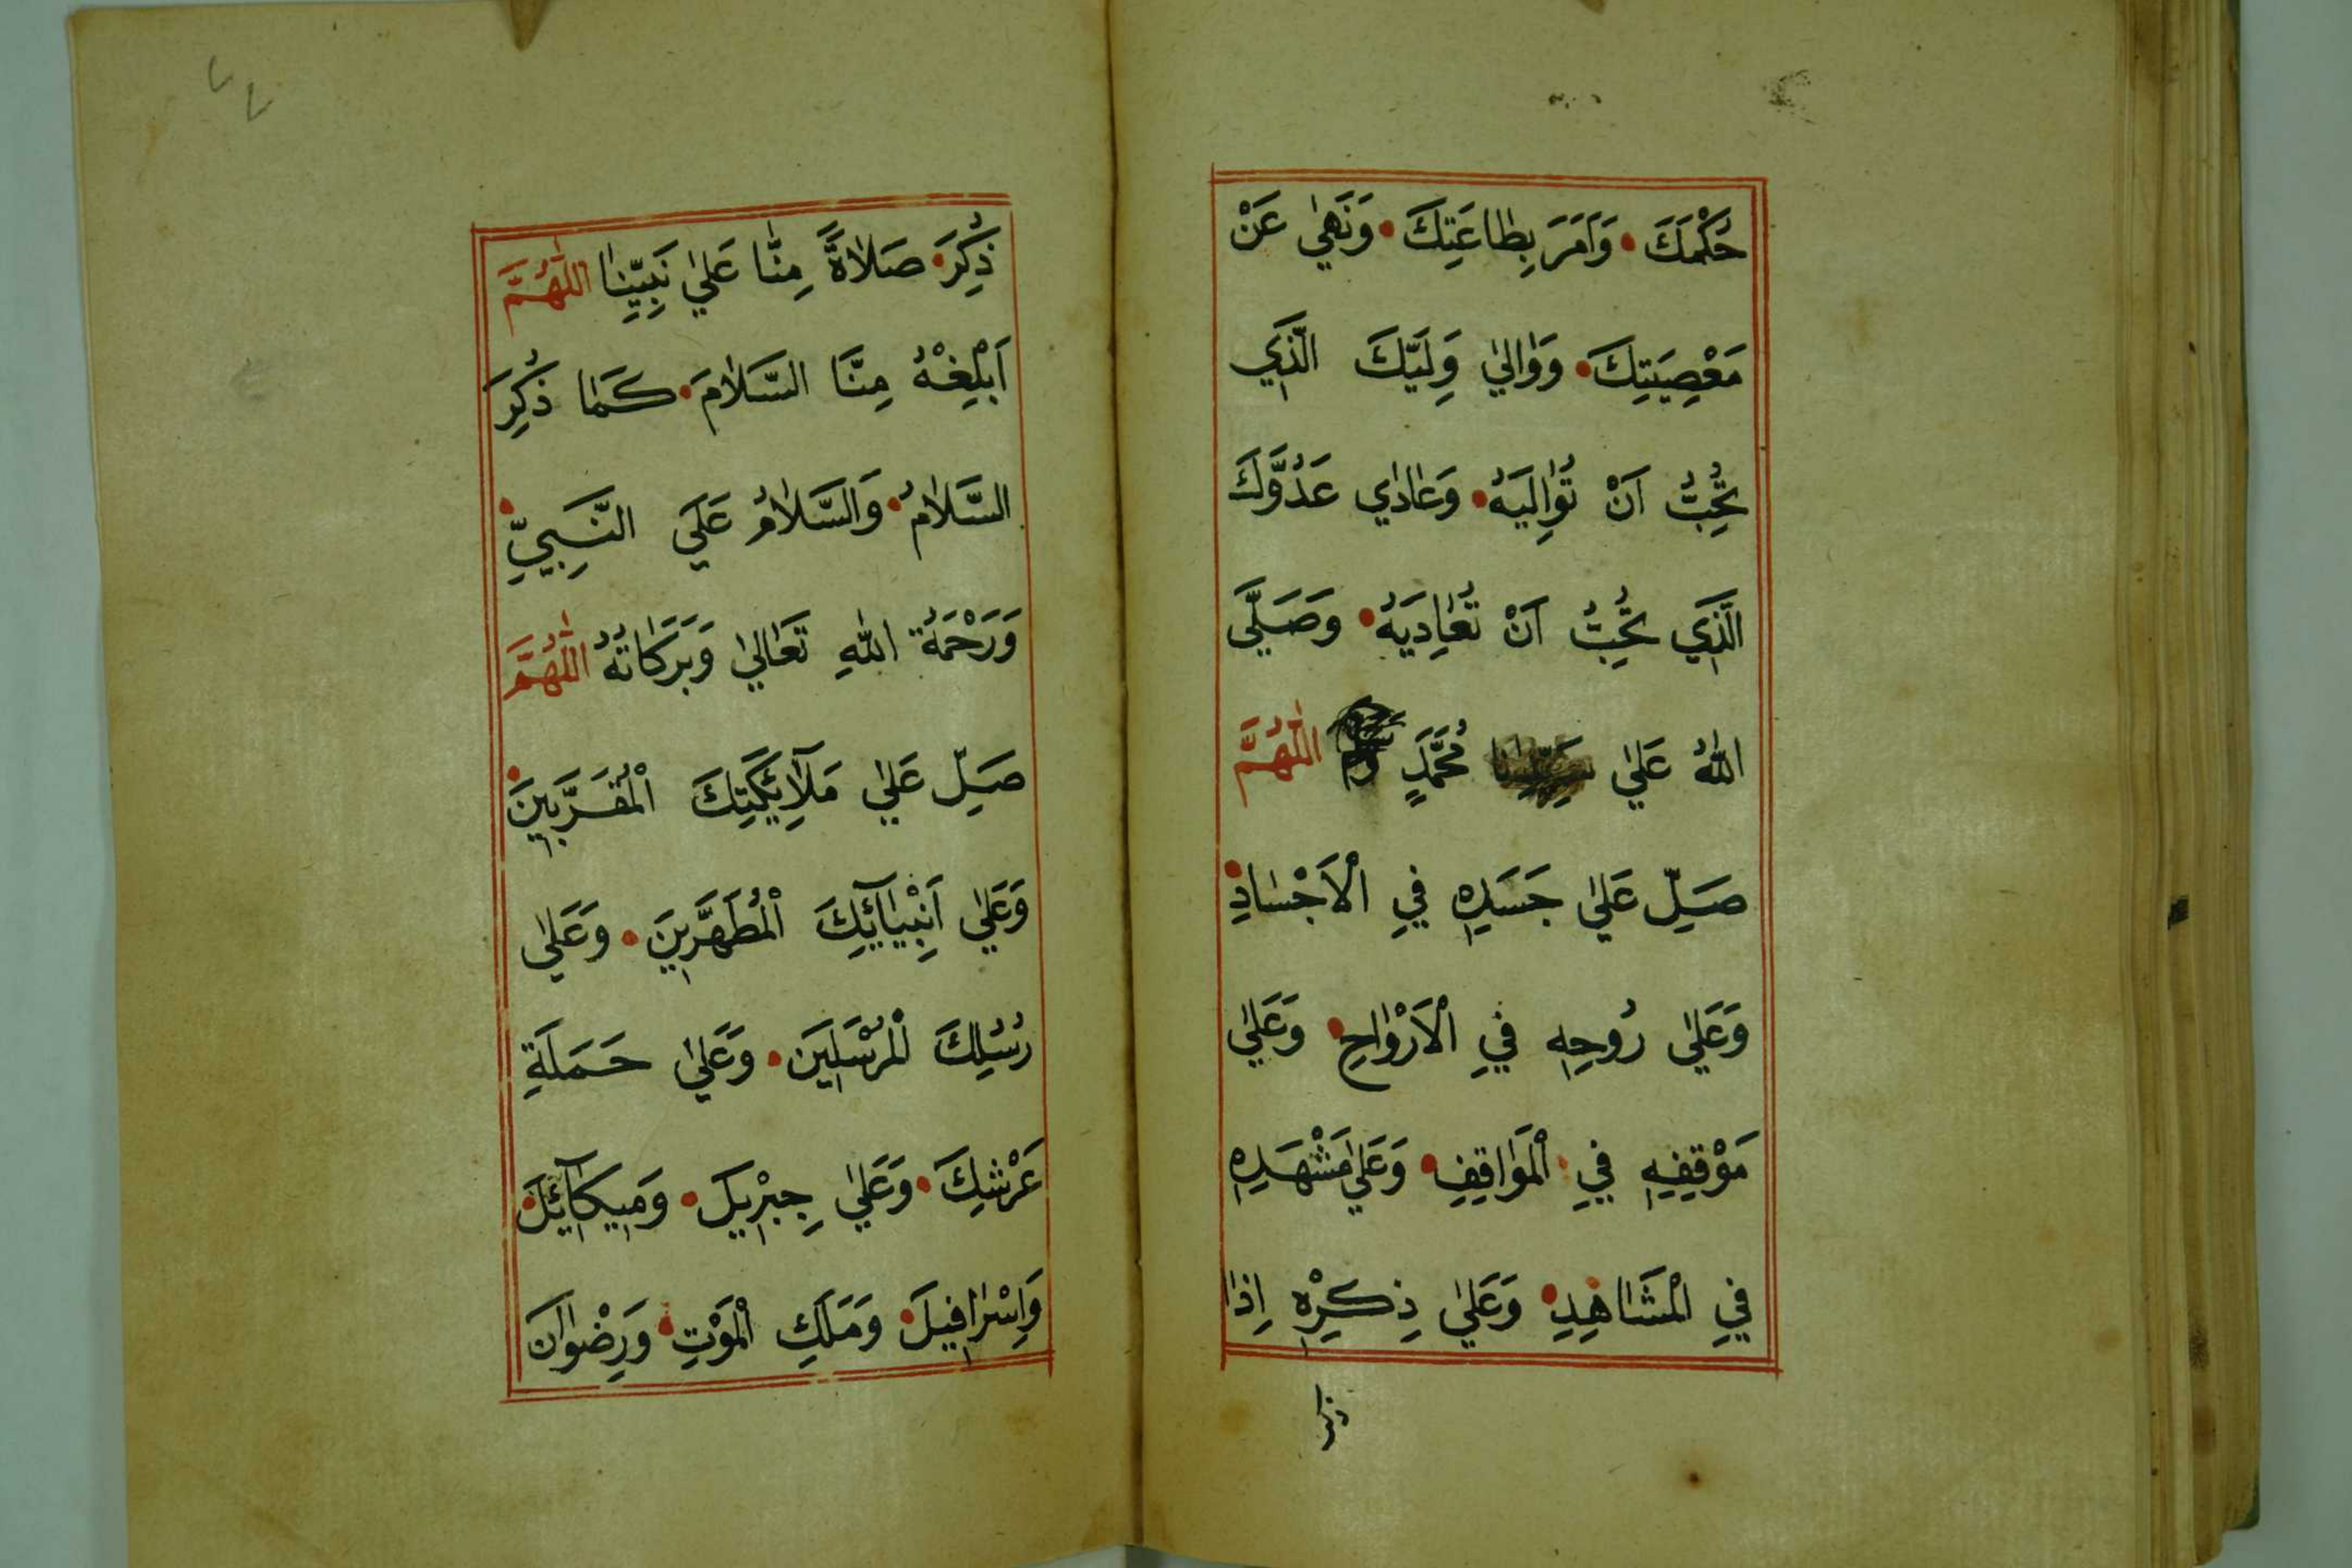 حُكْمَكَ • وَاَمَرَ بِطَاعَتِكَ • وَنَهٰي عَنْ
مَعْصِيَتِكَ • وَوَالٰي وَلِيَّكَ الَّذِي
تُحِبُّ اَنْ تُوَالِيَهُ • وَعَادٰي عَدُوَّكَ
الَّذِي تُحِبُّ اَنْ تُعَادِيَهُ • وَصَلَّي
اللّٰهُ عَلٰي مُحَمَّدٍ اَللّٰهُمَّ
صَلِّ عَلٰي جَسَدِهٖ فِي الْاَجْسَادِ •
وَعَلٰي رُوحِهٖ فِي الْاَرْوَاحِ • وَعَلٰي
مَوْقِفِهٖ فِي الْمَوَاقِفِ • وَعَلٰي مَشْهَدِهٖ
فِي الْمَشَاهِدِ • وَعَلٰي ذِكْرِهٖ اِذَا
ذكر
٧٧
ذُكِرَ • صَلَاةً مِنَّا عَلٰي نَبِيِّنَا اَللّٰهُمَّ
اَبْلِغْهُ مِنَّا السَّلَامَ • كَمَا ذُكِرَ
السَّلَامُ • وَالسَّلَامُ عَلَي النَّبِيِّ •
وَرَحْمَةُ اللّٰهِ تَعَالٰي وَبَرَكَاتُهُ اَللّٰهُمَّ
صَلِّ عَلٰي مَلَآئِكَتِكَ الْمُقَرَّبِينَ •
وَعَلٰي اَنْبِيَآئِكَ الْمُطَهَّرِينَ • وَعَلٰي
رُسُلِكَ الْمُرْسَلِينَ • وَعَلٰي حَمَلَةِ
عَرْشِكَ • وَعَلٰي جِبْرِيلَ • وَمِيكَآئِلَ •
وَاِسْرَافِيلَ • وَمَلَكِ الْمَوْتِ • وَرِضْوَانَ